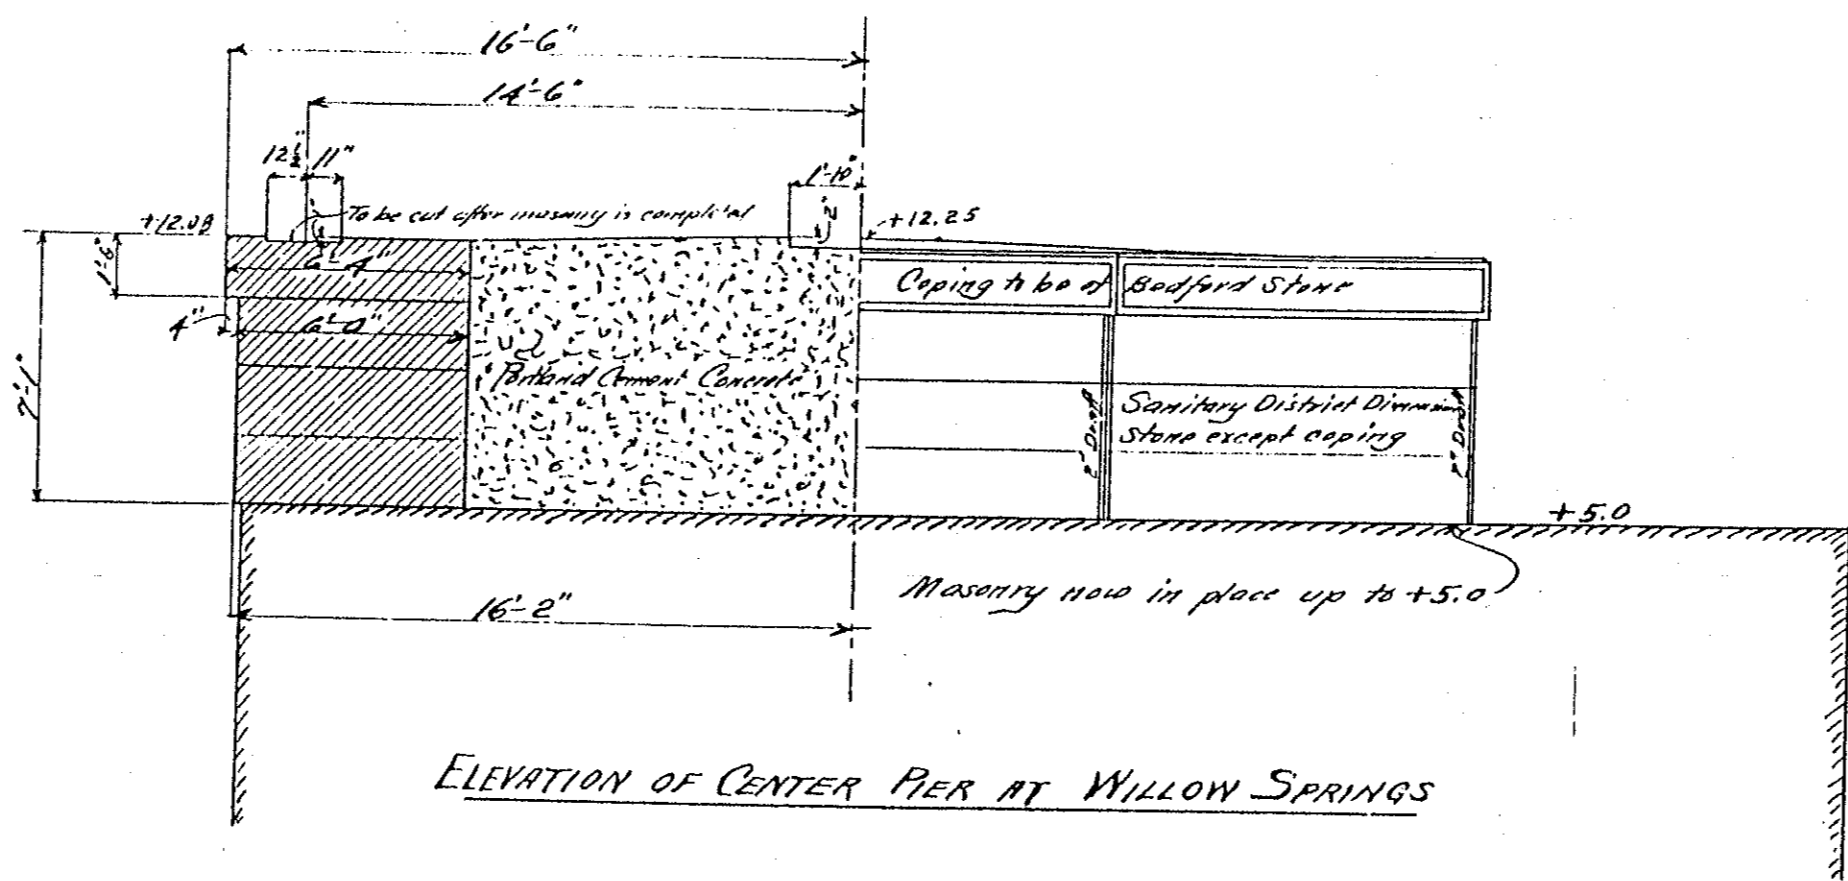 16'-6"
14'-6"
12½" 11"
1'-10"
To be cut after masonry is completed
2"
+12.08
+12.25
1'-6"
6'-4"
Coping to be of Bedford Stone
4"
6'-0"
7'-1"
Portland Cement Concrete
2" Draft
Sanitary District Dimension
Stone except coping
2" Draft
+5.0
Masonry now in place up to +5.0
16'-2"
ELEVATION OF CENTER PIER AT WILLOW SPRINGS